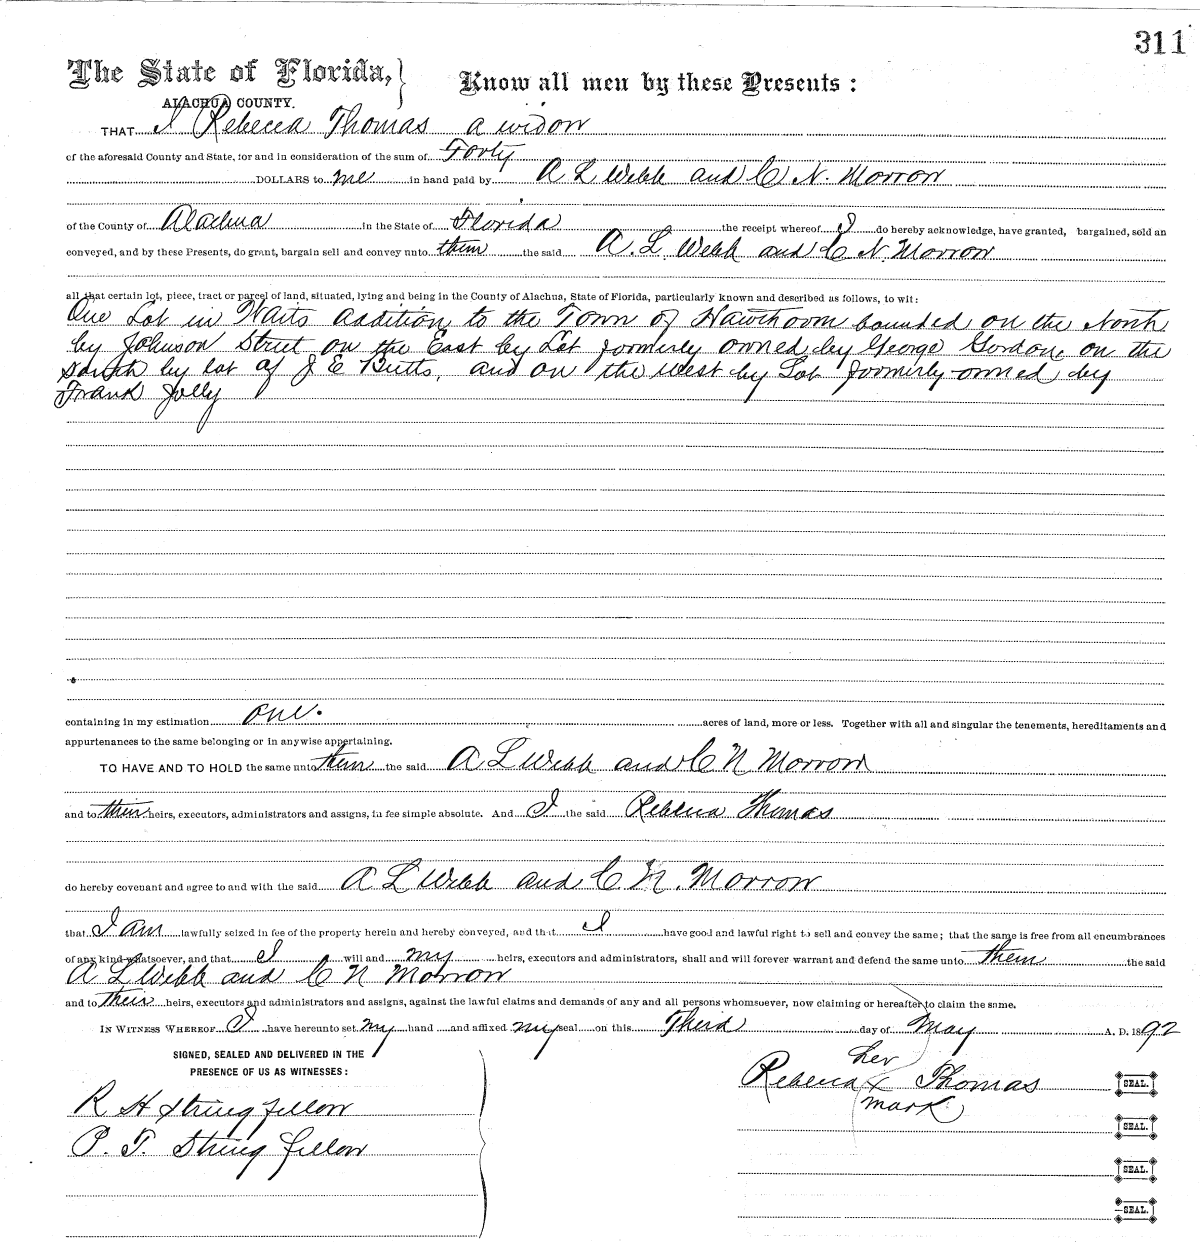 311
The State of Florida,} Know all men by these Presents:
ALACHUA COUNTY.
THAT I Rebecca Thomas a widow
of the aforesaid County and State, for and in consideration of the sum of Forty
DOLLARS to me in hand paid by A L Webb and C N. Morrow
of the County of Alachua in the State of Florida the receipt whereof I do hereby acknowledge, have granted, bargained, sold an
conveyed, and by these Presents, do grant, bargain sell and convey unto them the said A. L. Webb and C N. Morrow
all that certain lot, piece, tract or parcel of land, situated, lying and being in the County of Alachua, State of Florida, particularly known and described as follows, to wit:
One Lot in Waits addition to the Town of Hawthoorn bounded on the North
by Johnson Street on the East by Lot formerly owned by George Gordon, on the
South by lot of J E Butts, and on the west by Lot formerly owned by
Frank Jolly
containing in my estimation one. acres of land, more or less. Together with all and singular the tenements, hereditaments and
appurtenances to the same belonging or in anywise appertaining.
TO HAVE AND TO HOLD the same unto them the said A L Webb and C N Morrow
and to their heirs, executors, administrators and assigns, in fee simple absolute. And I the said Rebecca Thomas
do hereby covenant and agree to and with the said A L Webb and C N. Morrow
that I am lawfully seized in fee of the property herein and hereby conveyed, and that I have good and lawful right to sell and convey the same; that the same is free from all encumbrances
of any kind whatsoever, and that I will and my heirs, executors and administrators, shall and will forever warrant and defend the same unto them the said
A L Webb and C N Morrow
and to their heirs, executors and administrators and assigns, against the lawful claims and demands of any and all persons whomsoever, now claiming or hereafter to claim the same.
IN WITNESS WHEREOF I have hereunto set my hand and affixed my seal on this Third day of May A. D. 1892
SIGNED, SEALED AND DELIVERED IN THE
PRESENCE OF US AS WITNESSES:
her
Rebecca x Thomas SEAL.
mark
R H Stringfellow
SEAL.
P. T. Stringfellow
SEAL.
SEAL.